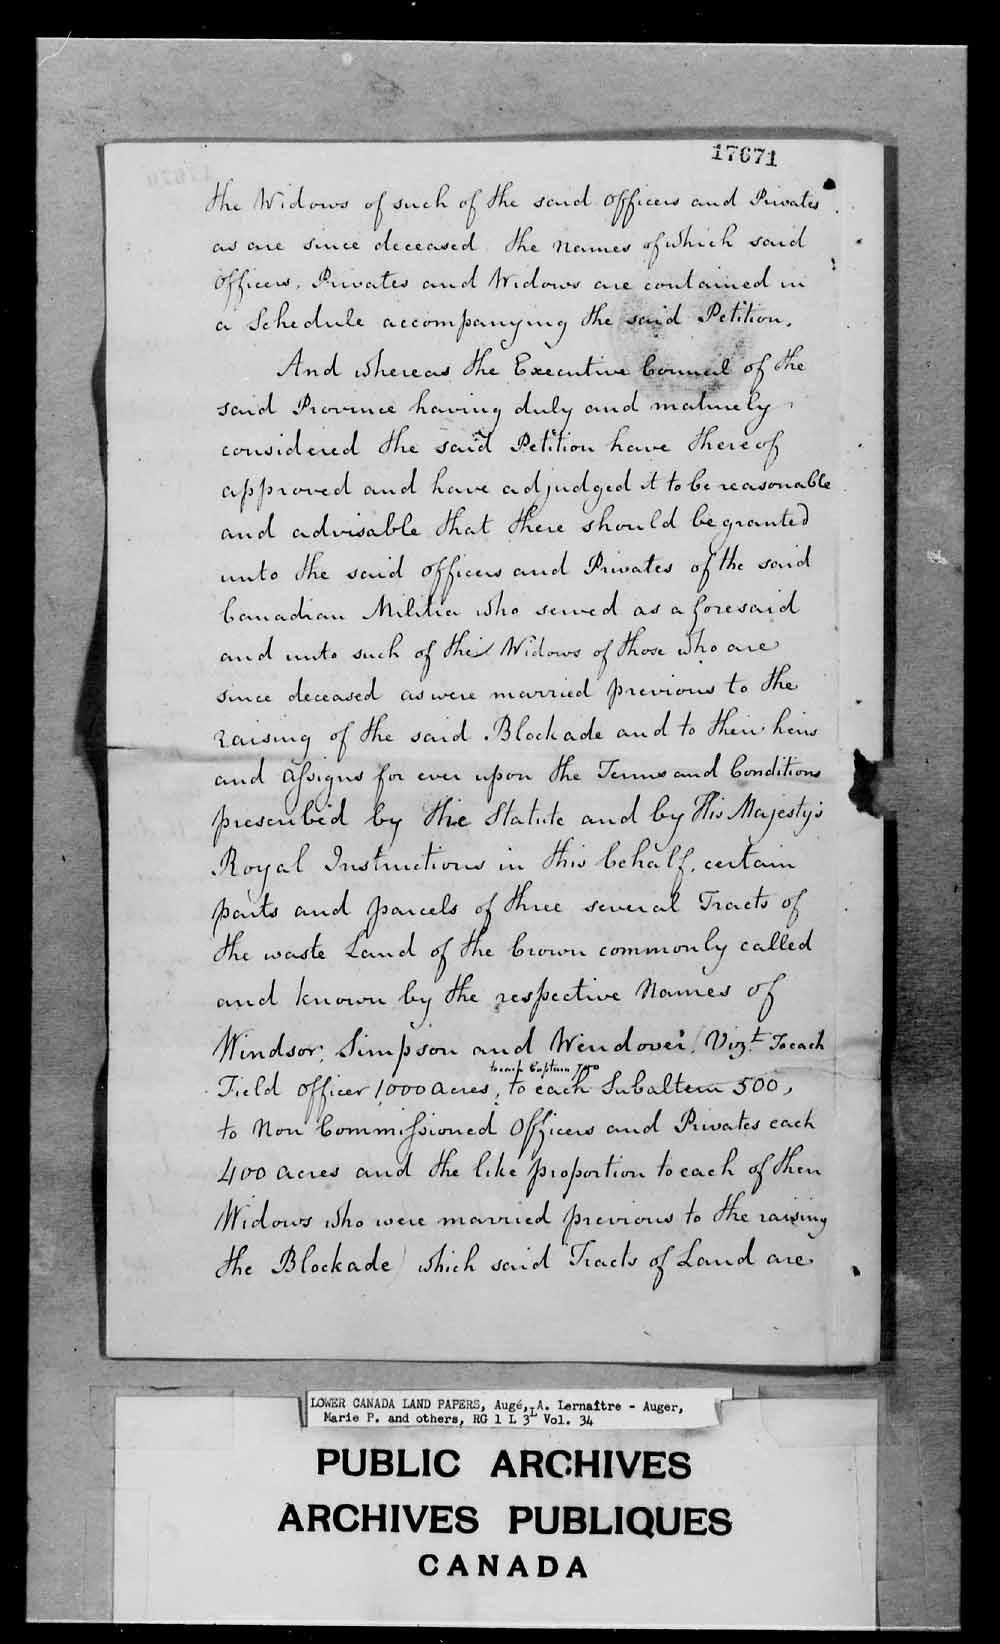 17671
the Widows of such of the said Officers and Privates
as are since deceased the Names of which said
Officers, Privates and Widows are contained in
a Schedule accompanying the said Petition.
And whereas the Executive Council of the
said Province having duly and maturely
considered the said Petition have thereof
approved and have adjudged it to be reasonable
and advisable that there should be granted
unto the said Officers and Privates of the said
Canadian Militia who served as aforesaid
and unto such of the Widows of those who are
since deceased as were married previous to the
raising of the said Blockade and to their heirs
and Assigns for ever upon the Terms and Conditions
prescribed by the Statute and by His Majesty's
Royal Instructions in this behalf, certain
parts and parcels of three several Tracts of
the waste Land of the Crown commonly called
and known by the respective Names of
Windsor, Simpson and Wendover, (Vizt. To each
to each Captain 700
Field Officer 1000 acres, to each Subaltern 500,
to Non Commissioned Officers and Privates each
400 acres and the like proportion to each of their
Widows who were married previous to the raising
the Blockade) which said Tracts of Land are
LOWER CANADA LAND PAPERS, Augé, A. Lernaître - Auger,
Marie P. and others, RG 1 L 3L Vol. 34
PUBLIC ARCHIVES
ARCHIVES PUBLIQUES
CANADA